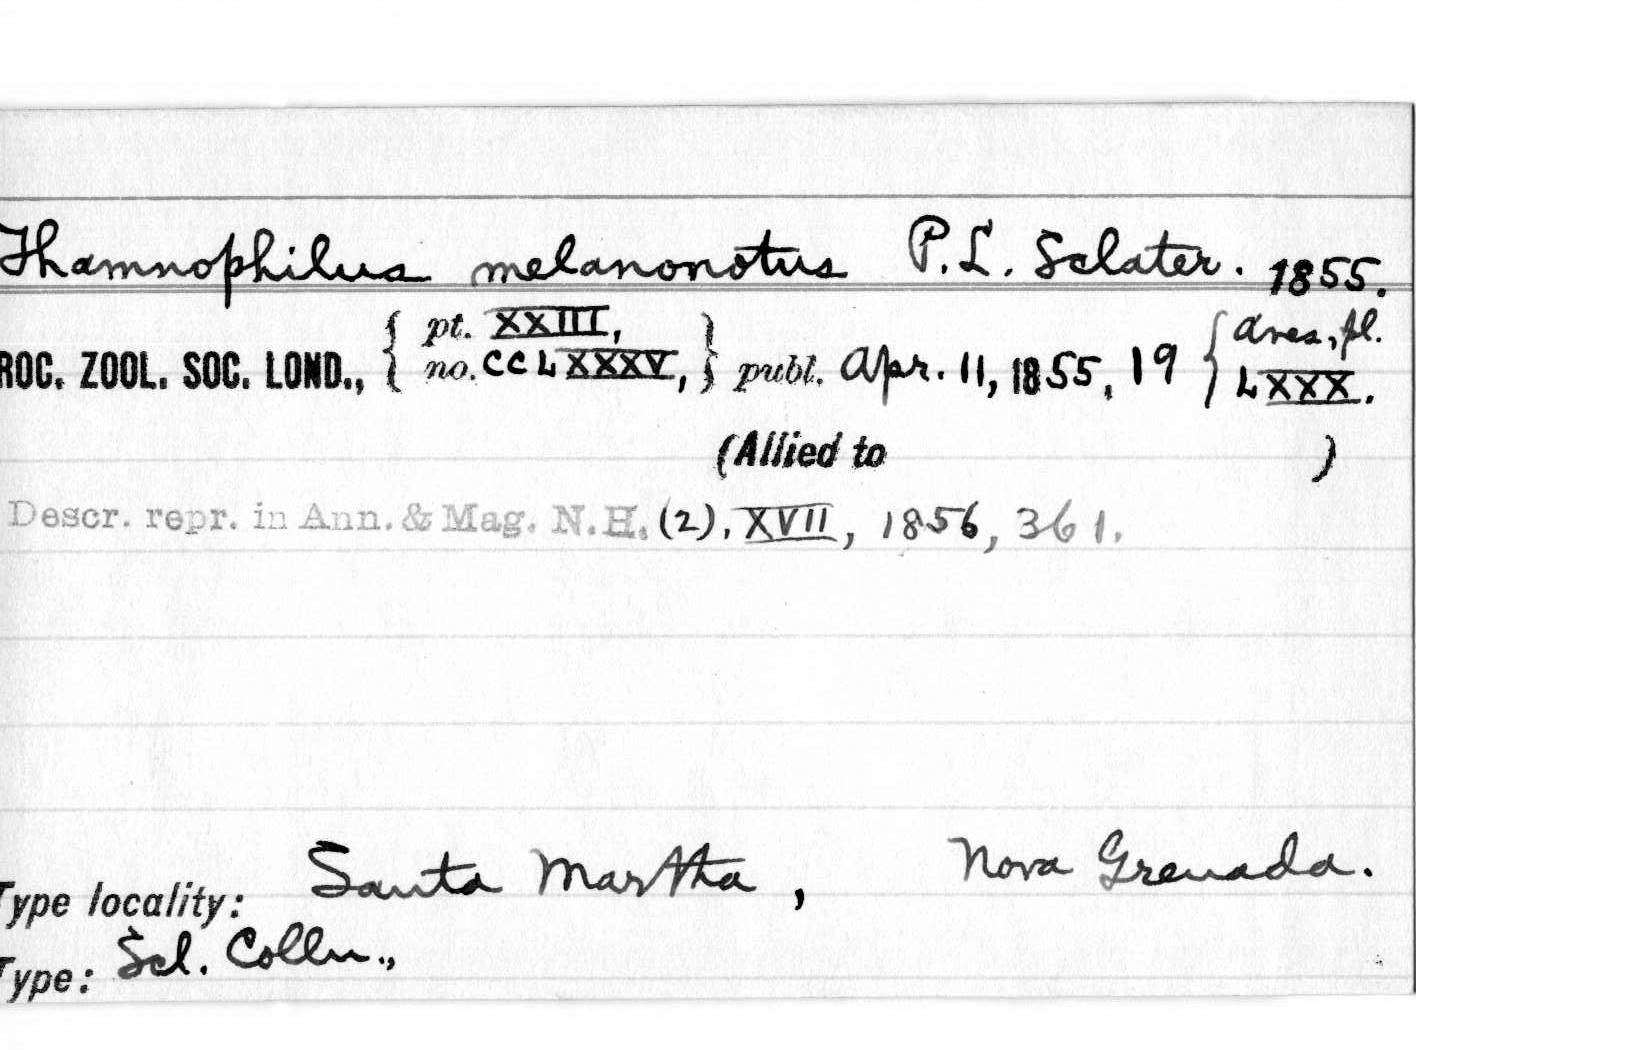 Thamnophilus melanonotus P. L. Sclater. 1855.
ROC. ZOOL. SOC. LOND., { pt. XXIII, no. CCLXXXV, } publ. Apr. 11, 1855, 19 { Aves, pl. LXXX.
(Allied to )
Descr. repr. in Ann. & Mag. N.H. (2), XVII, 1856, 361.
Type locality: Santa Martha, Nova Grenada.
Type: Scl. Colln.,